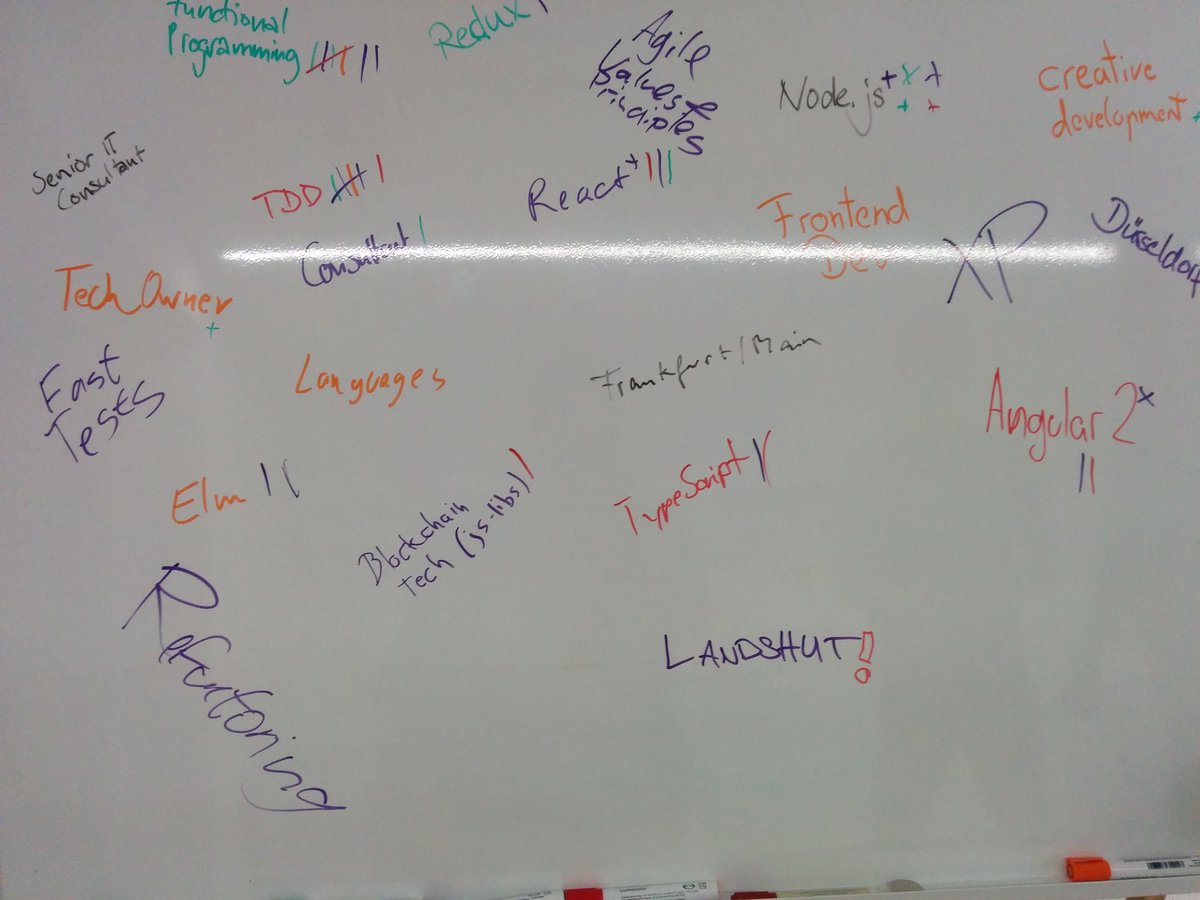 functional
Programming
Redux
Agile
Values &
Principles
Node.js
creative
development
Senior IT
Consultant
TDD
React
Frontend
Dev
XP
Düsseldorf
Consultant
Tech Owner
Fast
Tests
Languages
Frankfurt/Main
Angular 2
Elm
Blockchain
tech (js-libs)
TypeScript
Refactoring
LANDSHUT!